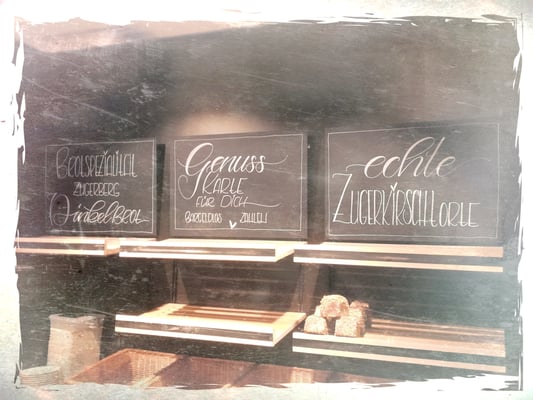 Brotspezialität
Zugerberg
Dinkelbrot
Genuss
Karte
für Dich
Bargeldlos Zahlen
echte
Zugerkirschtorte